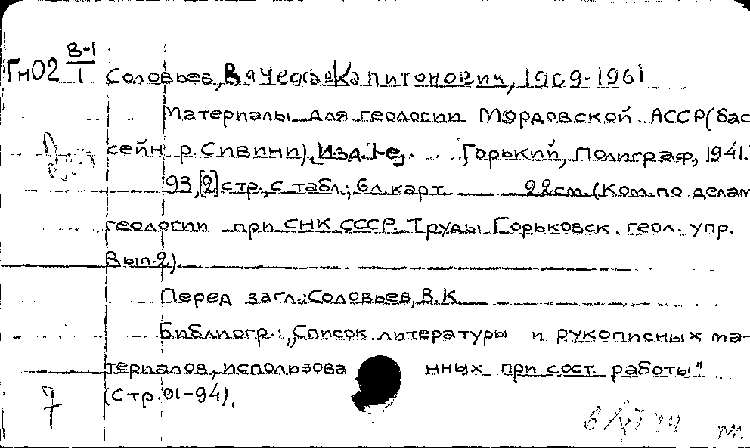 ГнО2 В-1/1 Соловьев, Вячеслав Капитонович, 1909-1961
Материалы для геологии Мордовской АССР (бас
сейн р. Сивини). Изд. 1-е. Горький, Полиграф, 1941.
93, [2] стр., с табл.; 6 л. карт 22 см. (Ком. по делам
геологии при СНК СССР. Труды Горьковск. геол. упр.
Вып. 2).
Перед загл.: Соловьев, В. К.
Библиогр.: "Список литературы и рукописных ма-
териалов, использова нных при сост. работы"
7 (стр. 91-94).